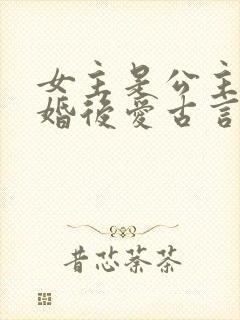 女主是公主
婚後愛古言
昔芯蓁茶